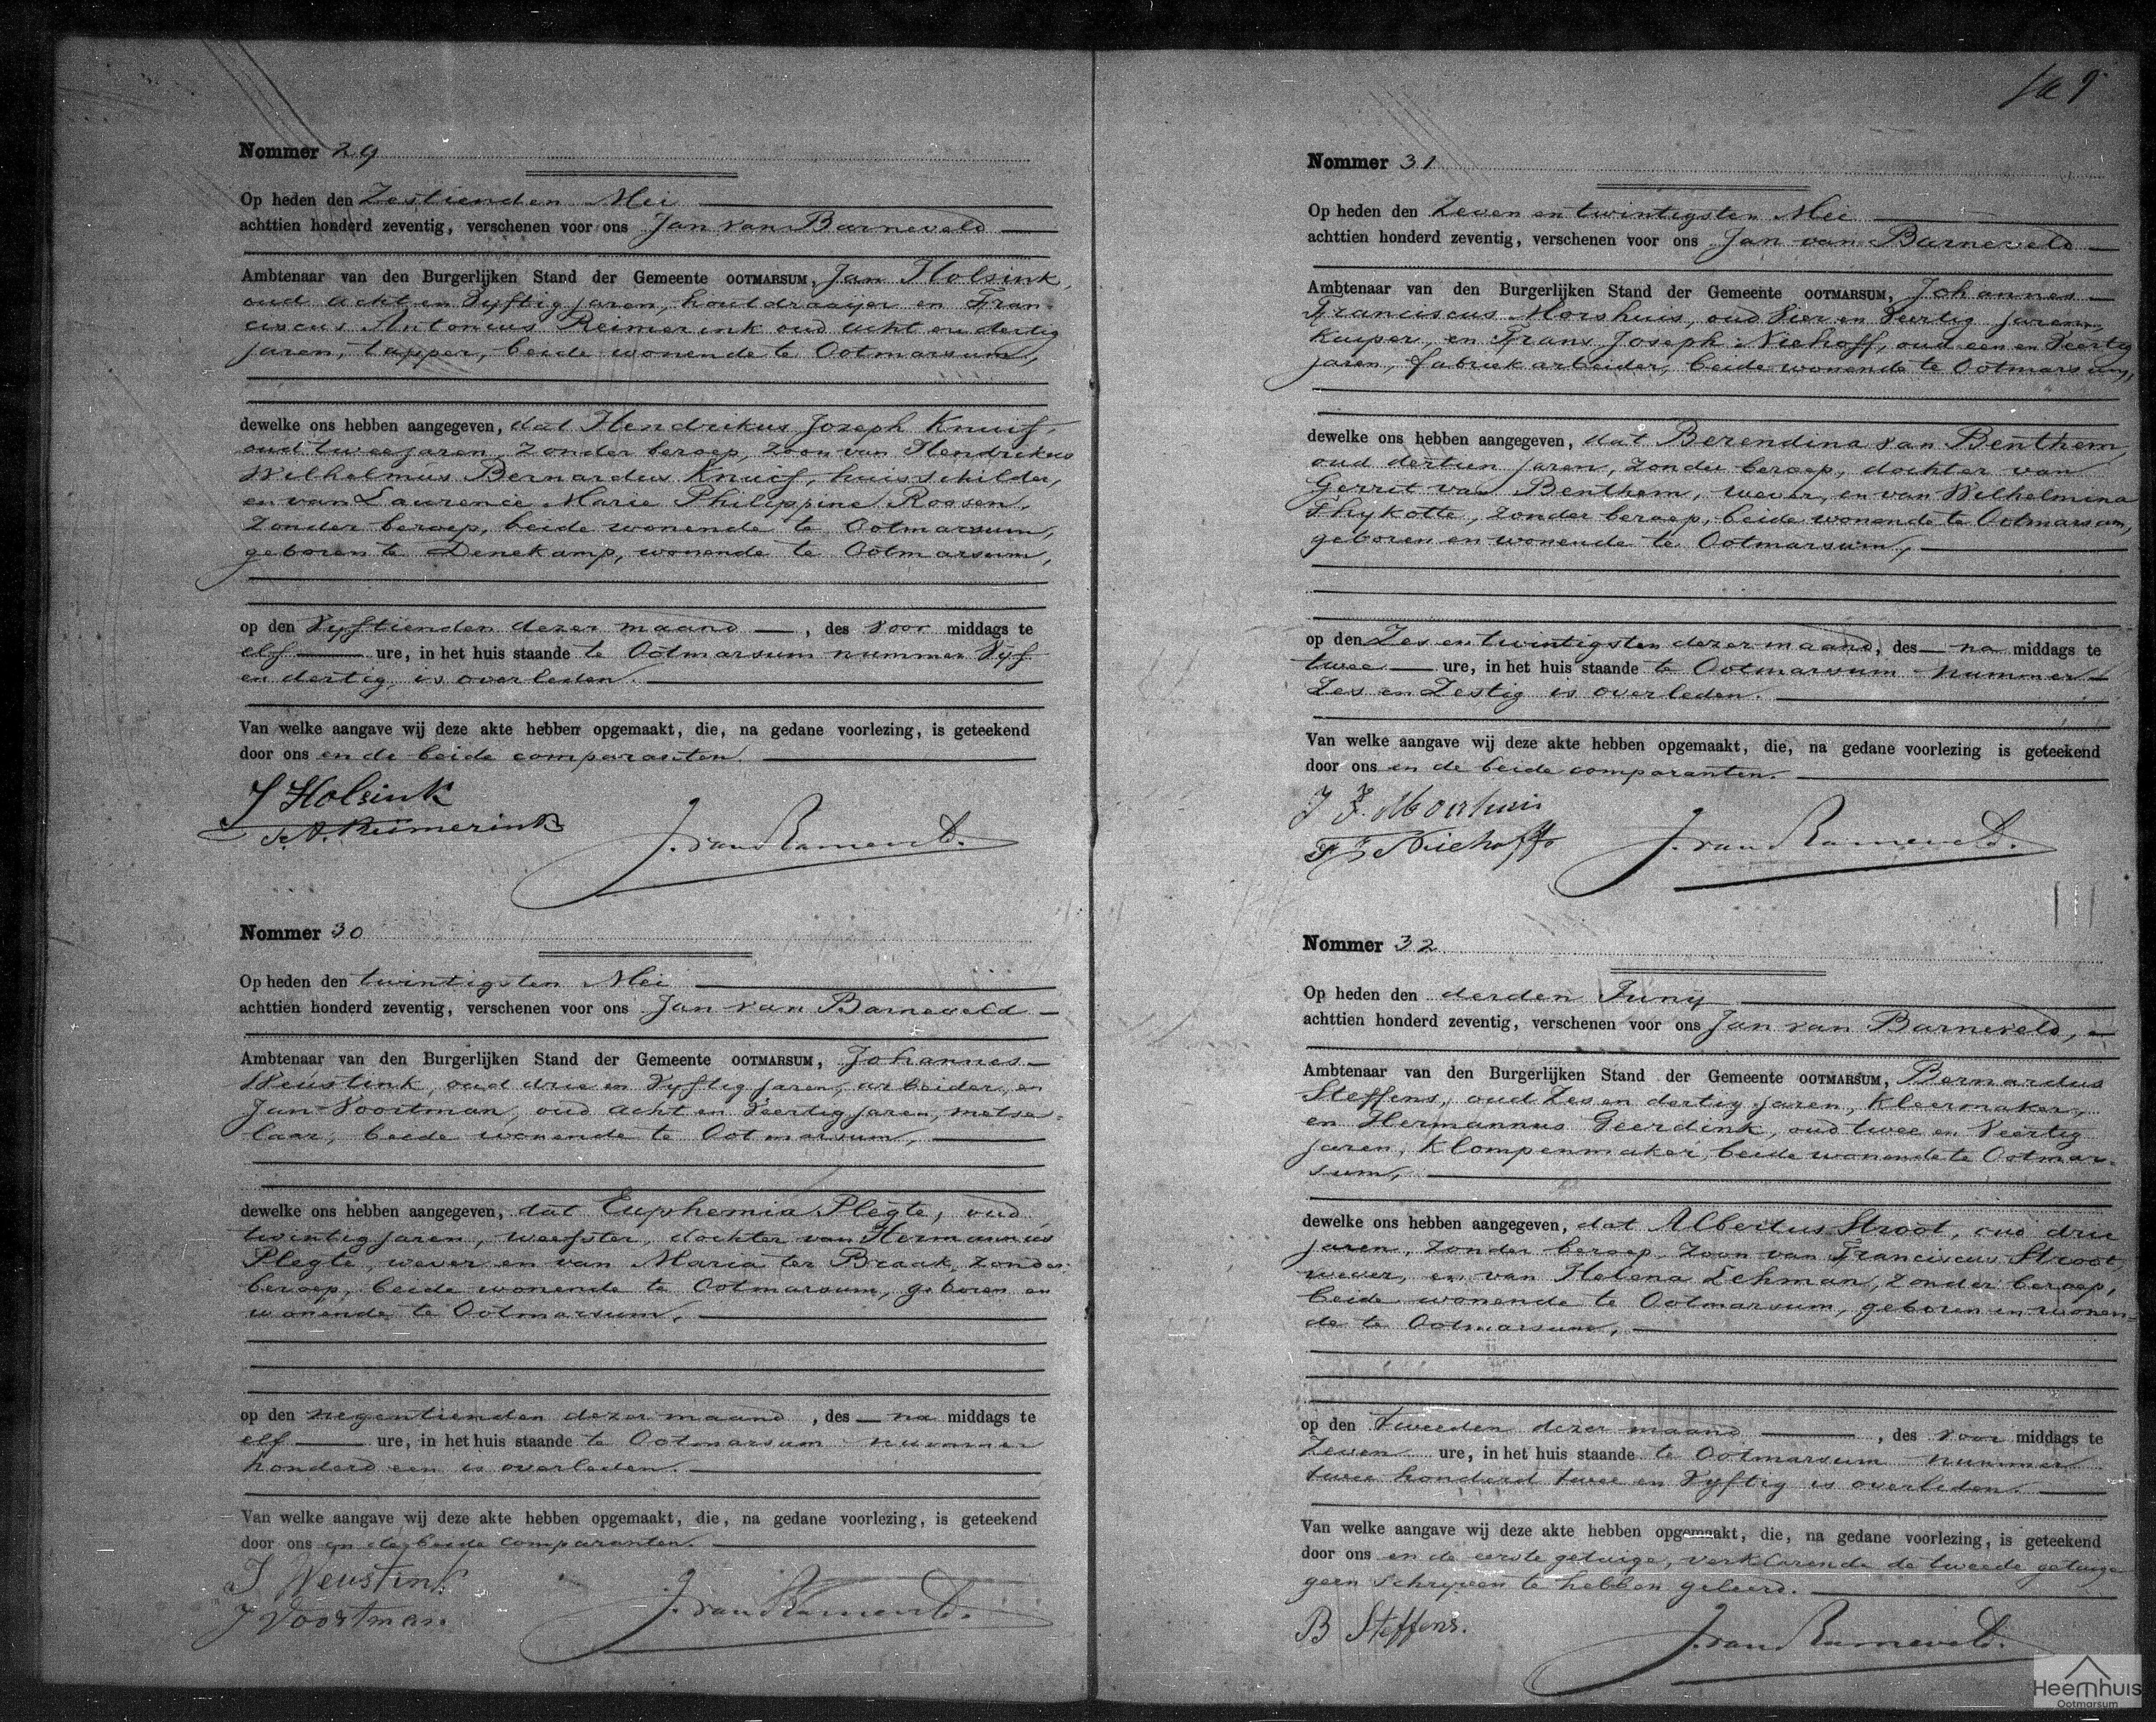 Nommer 29
Op heden den Zestienden Mei
achttien honderd zeventig, verschenen voor ons Jan van Barneveld
Ambtenaar van den Burgerlijken Stand der Gemeente OOTMARSUM, Jan Holsink,
oud acht en Vyftig jaren, houtdraaijer en Fran-
ciscus Antonius Reimerink oud acht en dertig
jaren, tapper, beide wonende te Ootmarsum,
dewelke ons hebben aangegeven, dat Hendrikus Joseph Knuif,
oud twee jaren, Zonder beroep, Zoon van Hendrikus
Wilhelmus Bernardus Knuif, huisschilder,
en van Laurence Marie Philippine Roosen,
Zonder beroep, beide wonende te Ootmarsum,
geboren te Denekamp, wonende te Ootmarsum,
op den Vyftienden dezer maand, des voor middags te
elf ure, in het huis staande te Ootmarsum nummer Vyf
en dertig, is overleden.
Van welke aangave wij deze akte hebben opgemaakt, die, na gedane voorlezing, is geteekend
door ons en de beide comparanten.
J Holsink
F. A. Reimerink
J. van Barneveld.
Nommer 30
Op heden den twintigsten Mei
achttien honderd zeventig, verschenen voor ons Jan van Barneveld
Ambtenaar van den Burgerlijken Stand der Gemeente OOTMARSUM, Johannes
Weustink, oud drie en Vyftig jaren, arbeider, en
Jan Voortman, oud acht en Veertig jaren, metse-
laar, beide wonende te Ootmarsum,
dewelke ons hebben aangegeven, dat Euphemia Plegte, oud
twintig jaren, weefster, dochter van Hermannus
Plegte, wever en van Maria ter Braak, Zonder
beroep, beide wonende te Ootmarsum, geboren en
wonende te Ootmarsum,
op den negentienden dezer maand, des na middags te
elf ure, in het huis staande te Ootmarsum nummer
honderd een is overleden.
Van welke aangave wij deze akte hebben opgemaakt, die, na gedane voorlezing, is geteekend
door ons en de beide comparanten.
J Weustink
J Voortman.
J. van Barneveld.
Nommer 31
Op heden den Zeven en twintigsten Mei
achttien honderd zeventig, verschenen voor ons Jan van Barneveld
Ambtenaar van den Burgerlijken Stand der Gemeente OOTMARSUM, Johannes
Franciscus Morshuis, oud Vier en Veertig jaren,
Kuiper, en Frans Joseph Niehoff, oud een en Veertig
jaren, fabriekarbeider, beide wonende te Ootmarsum,
dewelke ons hebben aangegeven, dat Berendina van Benthem,
oud dertien jaren, Zonder beroep, dochter van
Gerrit van Benthem, wever, en van Wilhelmina
, Zonder beroep, beide wonende te Ootmarsum,
geboren en wonende te Ootmarsum,
op den Zes en twintigsten dezer maand, des na middags te
twee ure, in het huis staande te Ootmarsum nummer
Zes en Zestig is overleden.
Van welke aangave wij deze akte hebben opgemaakt, die, na gedane voorlezing is geteekend
door ons en de beide comparanten.
J F. Morshuis
F J Niehoff
J. van Barneveld.
Nommer 32
Op heden den derden Juny
achttien honderd zeventig, verschenen voor ons Jan van Barneveld,
Ambtenaar van den Burgerlijken Stand der Gemeente OOTMARSUM, Bernardus
Steffens, oud Zes en dertig jaren, Kleermaker,
en Hermannus Geerdink, oud twee en Veertig
jaren, Klompenmaker, beide wonende te Ootmar-
sum,
dewelke ons hebben aangegeven, dat Albertus Stroot, oud drie
jaren, Zonder beroep, Zoon van Franciscus Stroot,
wever, en van Helena Lehman, Zonder beroep,
beide wonende te Ootmarsum, geboren en wonen-
de te Ootmarsum,
op den tweeden dezer maand, des voor middags te
Zeven ure, in het huis staande te Ootmarsum nummer
twee honderd twee en Vyftig is overleden.
Van welke aangave wij deze akte hebben opgemaakt, die, na gedane voorlezing, is geteekend
door ons en de eerste getuige, verklarende de tweede getuige
geen schryven te hebben geleerd.
B Steffens.
J. van Barneveld.
Heemhuis
Ootmarsum